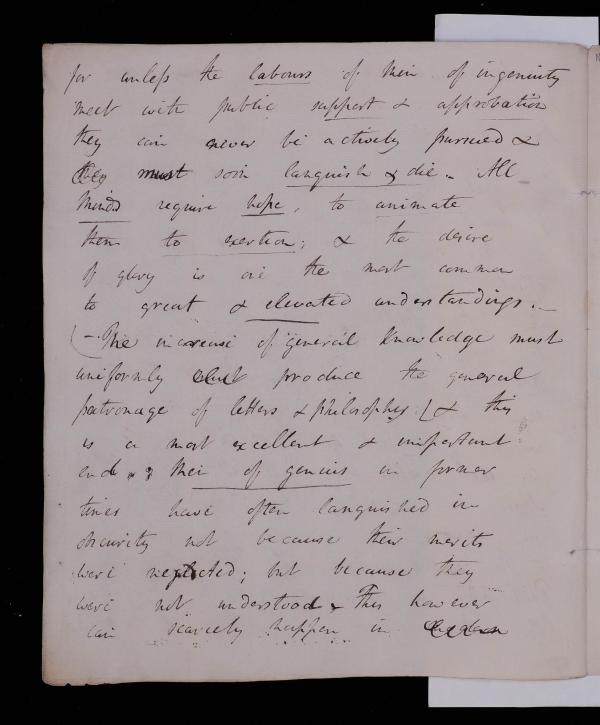 for unless the labours of Men of ingenuity
meet with public support & approbation
they can never be actively pursued &
they must soon languish & die. All
Minds require hope, to animate
them to exertion; & the desire
of glory is one the most common
to great & elevated understandings. -
(- The increase of general knowledge must
uniformly produce the general
patronage of letters & philosophy [& this
is a most excellent & important
end. Men of genius in former
times have often languished in
obscurity not because their merits
were neglected; but because they
were not understood. This however
can scarcely happen in